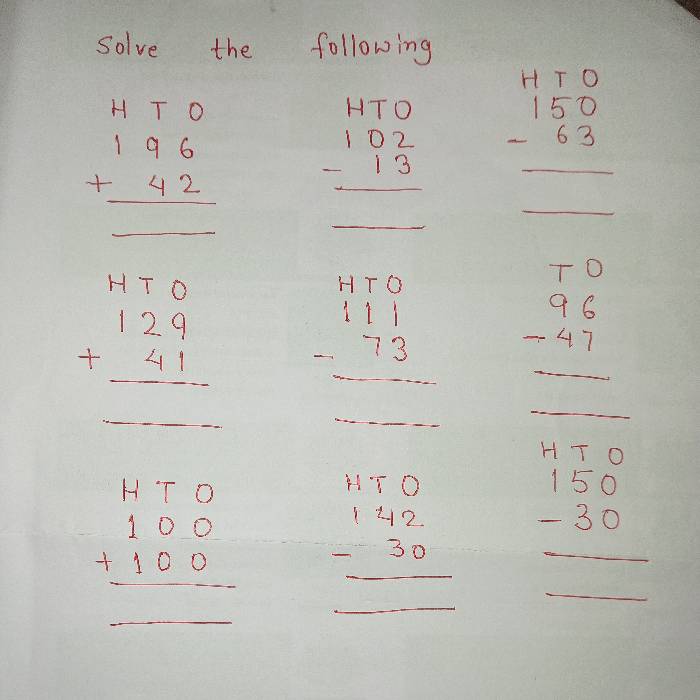 Solve the following
H T O
1 9 6
+ 4 2
H T O
1 0 2
- 1 3
H T O
1 5 0
- 6 3
H T O
1 2 9
+ 4 1
H T O
1 1 1
- 7 3
T O
9 6
- 4 7
H T O
1 0 0
+ 1 0 0
H T O
1 4 2
- 3 0
H T O
1 5 0
- 3 0